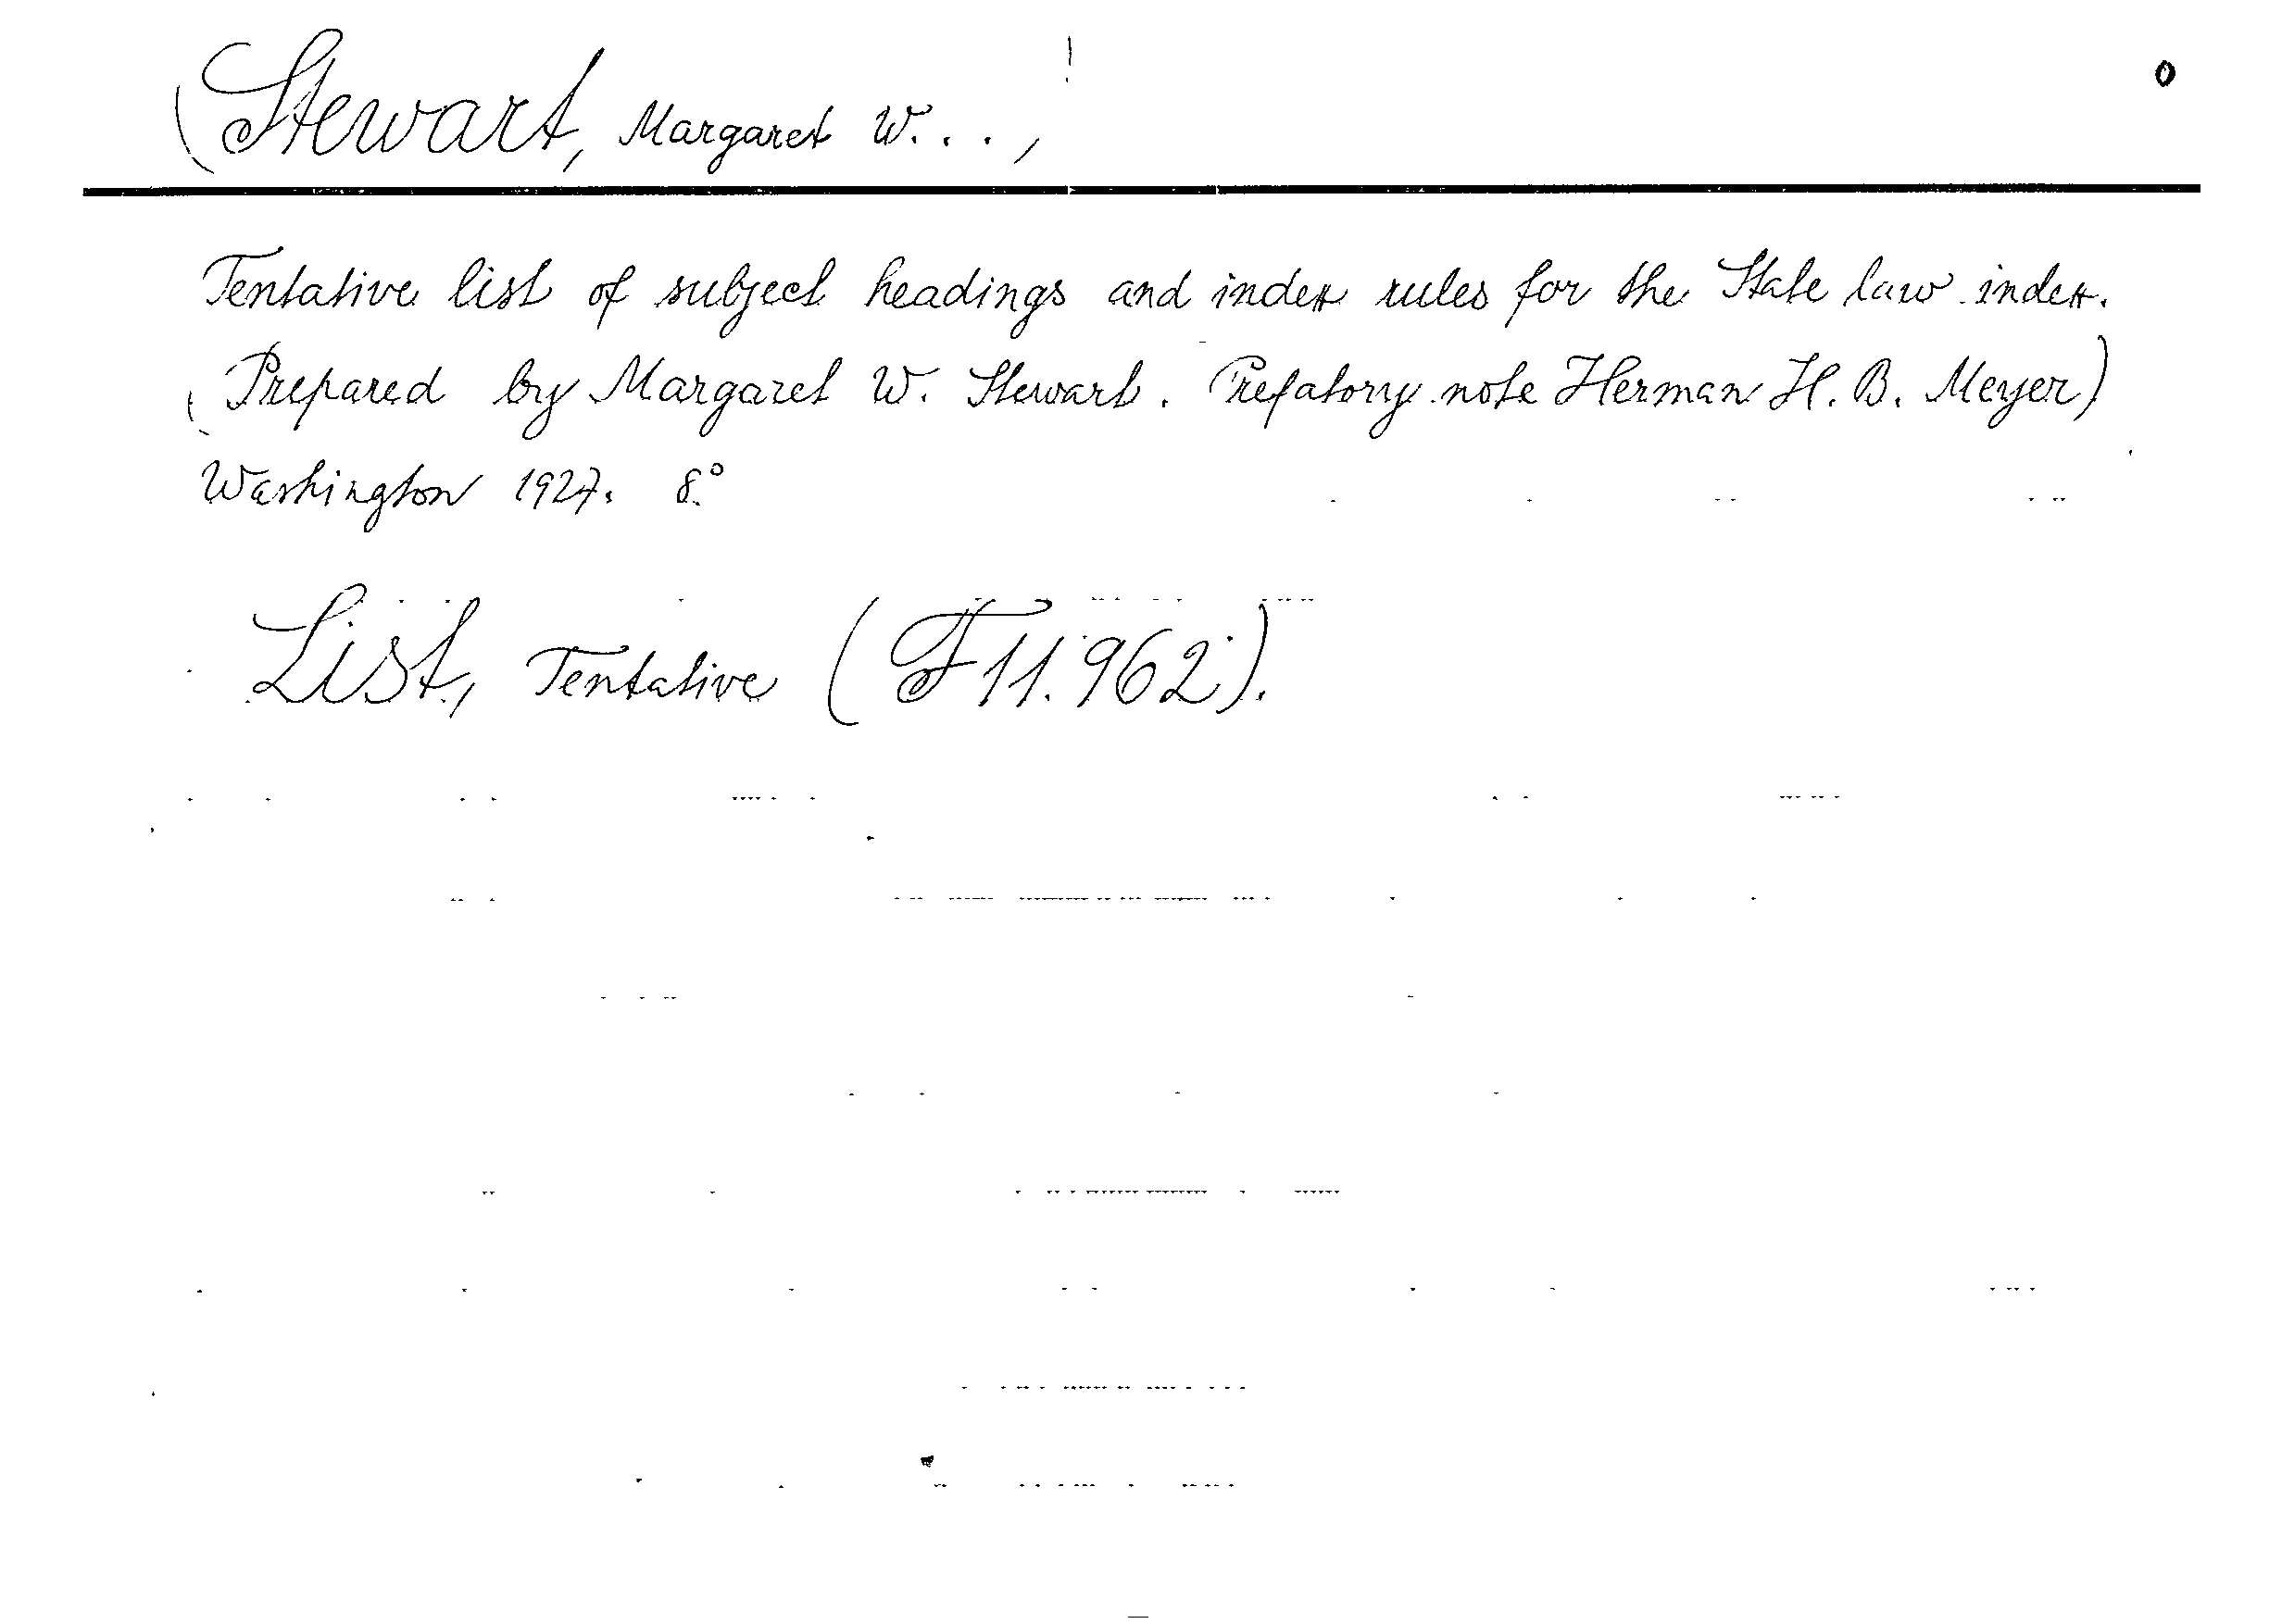 (Stewart, Margaret W. . . ,
0
Tentative list of subject headings and index rules for the State law index.
(Prepared by Margaret W. Stewart. Prefatory note Herman H. B. Meyer)
Washington 1927. 8.°
List, Tentative (F 11.962).